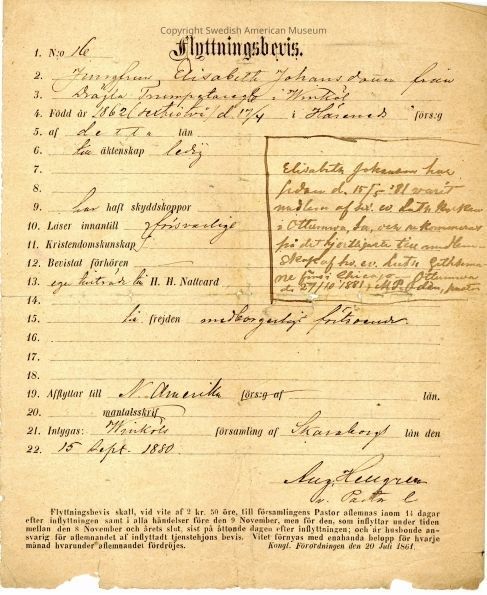 Copyright Swedish American Museum
Flyttningsbevis.
1. N:o 16
2. Jungfrun Elisabeth Johansdotter från
3. i Winköl
4. Född år 1862 (sextiotvå) d. 17/4 i Harened förs:g
5. af detta län
6. till äktenskap ledig
7.
8.
9. har haft skyddskoppor
10. Läser innantill försvarlig
11. Kristendomskunskap
12. Bevistat förhören
13. ege tillträde till H. H. Nattvard
14.
15. till frejden medborgerligt förtroende
16.
17.
18.
19. Afflyttar till N. Amerika förs:g af län.
20. mantalsskrif
21. Intygas: Winköls församling af Skaraborgs län den
22. 15 Sept. 1880.
Aug Hellgren
v. Pastor
Elisabeth Johanson har
sedan d. 15/ '81 varit
medlem af sv. ev. Luth. Kyrkan
i Ottumwa, Ia, och rekommenderas
på det hjertligaste till medlem-
skap af sv. ev. Luth. Gethsema-
ne förs i Chicago. Ottumwa
d. 27/10 1881. pastor
Flyttningsbevis skall, vid vite af 2 kr. 50 öre, till församlingens Pastor aflemnas inom 14 dagar
efter inflyttningen samt i alla händelser före den 9 November, men för den, som inflyttar under tiden
mellan den 8 November och årets slut, sist på åttonde dagen efter inflyttningen; och är husbonde an-
svarig för aflemnandet af inflyttadt tjenstehjons bevis. Vitet förnyas med enahanda belopp för hvarje
månad hvarunder aflemnandet fördröjes. Kongl. Förordningen den 20 Juli 1861.